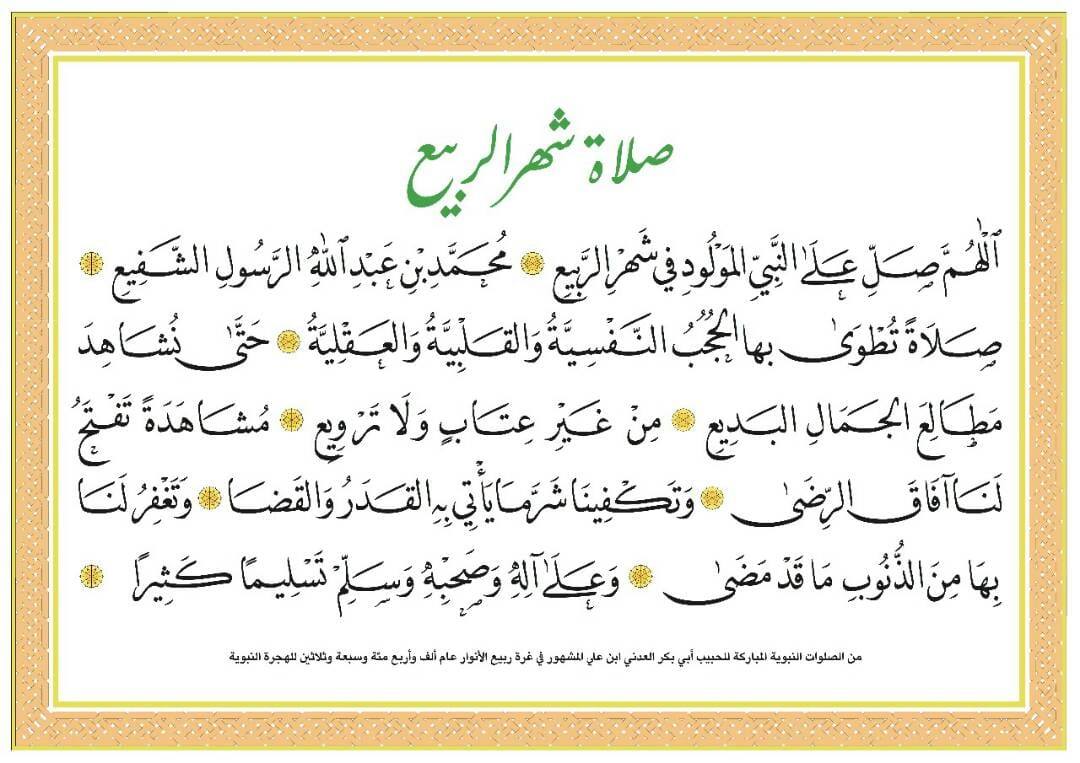 صلاة شهر الربيع
اَللّٰهُمَّ صَلِّ عَلَىٰ النَّبِيِّ المَوْلُودِ فِي شَهْرِ الرَّبِيعِ ۞ مُحَمَّدِ بْنِ عَبْدِ اللهِ الرَّسُولِ الشَّفِيعِ ۞
صِلَاةً تُطْوَىٰ بها الحُجُبُ النَّفْسِيَّةُ وَالقَلبِيَّةُ وَالعَقْلِيَّةُ ۞ حَتَّىٰ نُشَاهِدَ
مَطَالِعَ الجَمَالِ البَدِيعِ ۞ مِنْ غَيْرِ عِتَابٍ وَلَا تَرْوِيعٍ ۞ مُشَاهَدَةً تَفْتَحُ
لَنَا آفَاقَ الرِّضَىٰ ۞ وَتَكْفِينَا شَرَّ مَا يَأْتِي بِهِ القَدَرُ وَالقَضَا ۞ وَتَغْفِرُ لَنَا
بِهَا مِنَ الذُّنُوبِ مَا قَدْ مَضَىٰ ۞ وَعَلَىٰ آلِهِ وَصَحْبِهِ وَسَلِّمْ تَسْلِيمًا كَثِيرًا ۞
من الصلوات النبوية المباركة للحبيب أبي بكر العدني ابن علي المشهور في غرة ربيع الأنوار عام ألف وأربع مئة وسبعة وثلاثين للهجرة النبوية